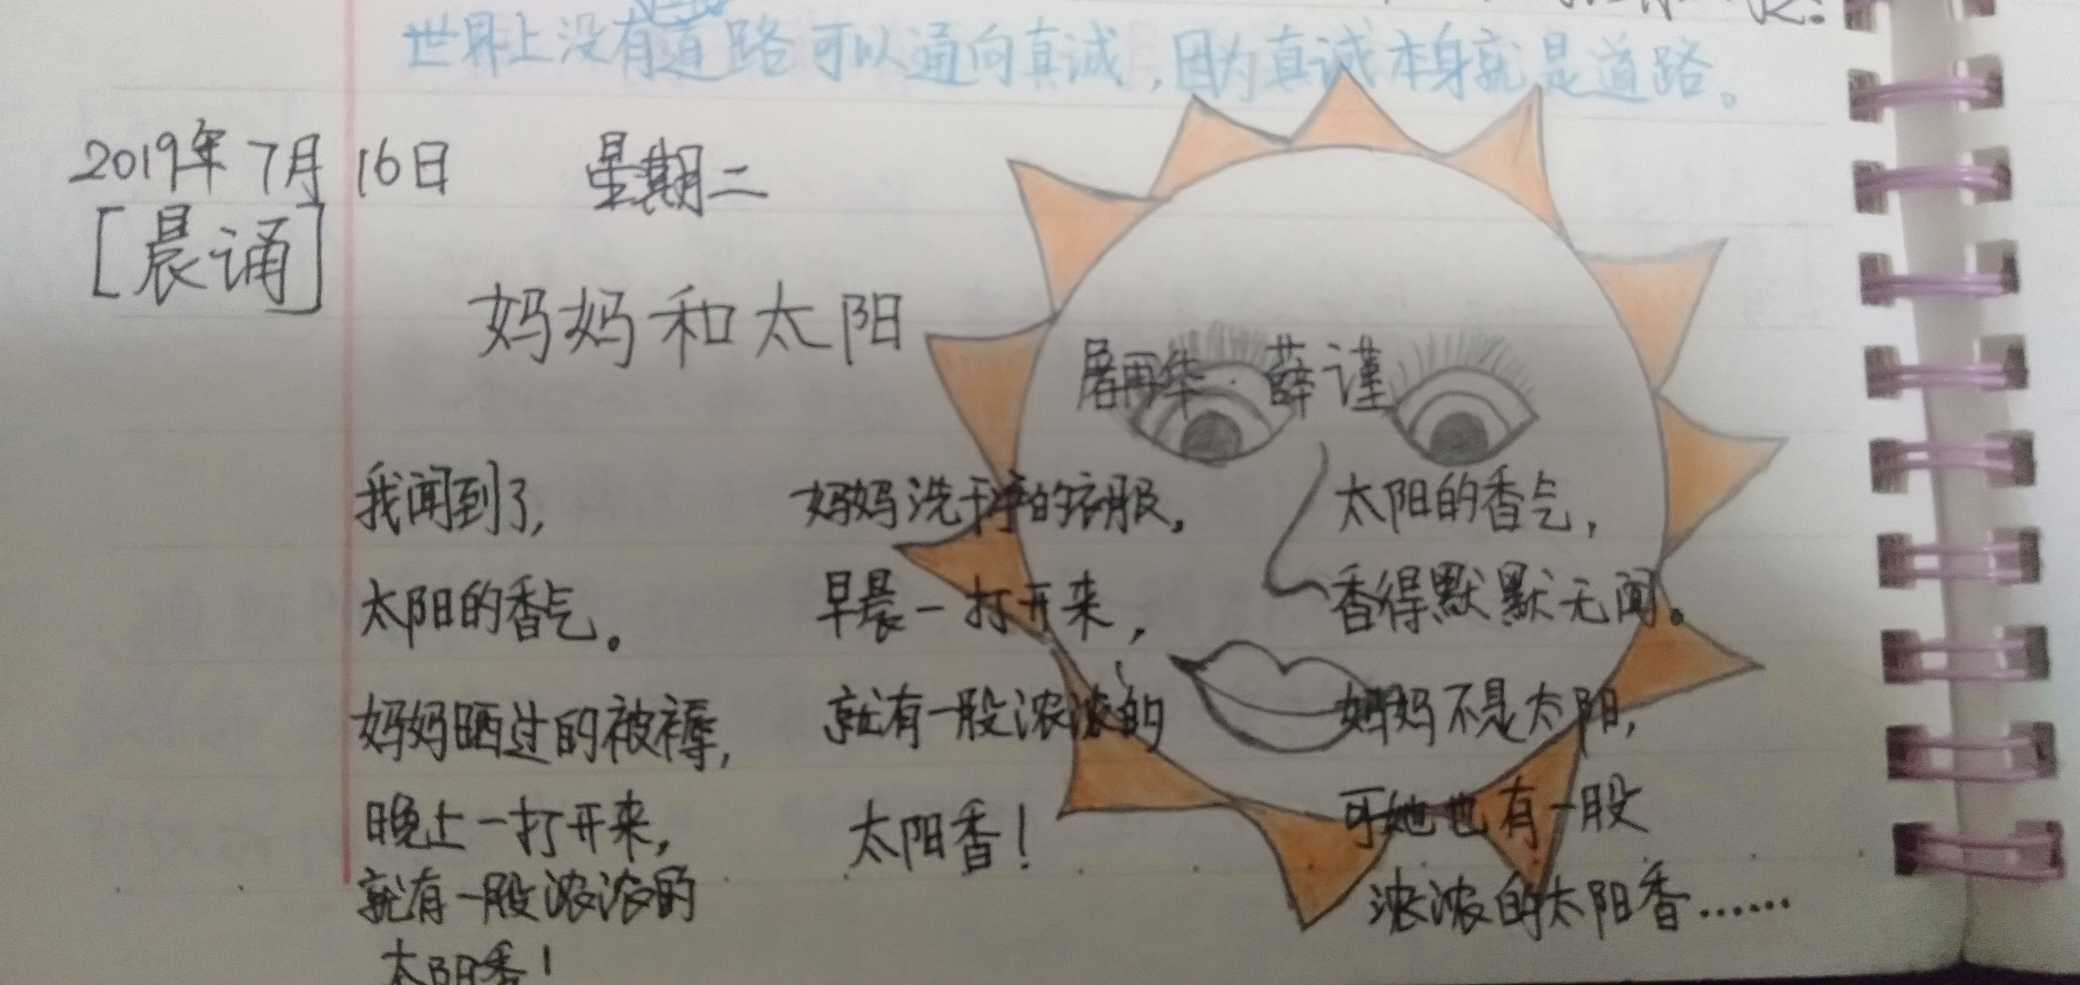 世界上没有道路可以通向真诚，因为真诚本身就是道路。
2019年7月16日 星期二
[晨诵]
妈妈和太阳
屠再华·薛谨
我闻到了，
太阳的香气。
妈妈晒过的被褥，
晚上一打开来，
就有一股浓浓的
太阳香！
妈妈洗干净的衣服，
早晨一打开来，
就有一股浓浓的
太阳香！
太阳的香气，
香得默默无闻。
妈妈不是太阳，
可她也有一股
浓浓的太阳香……